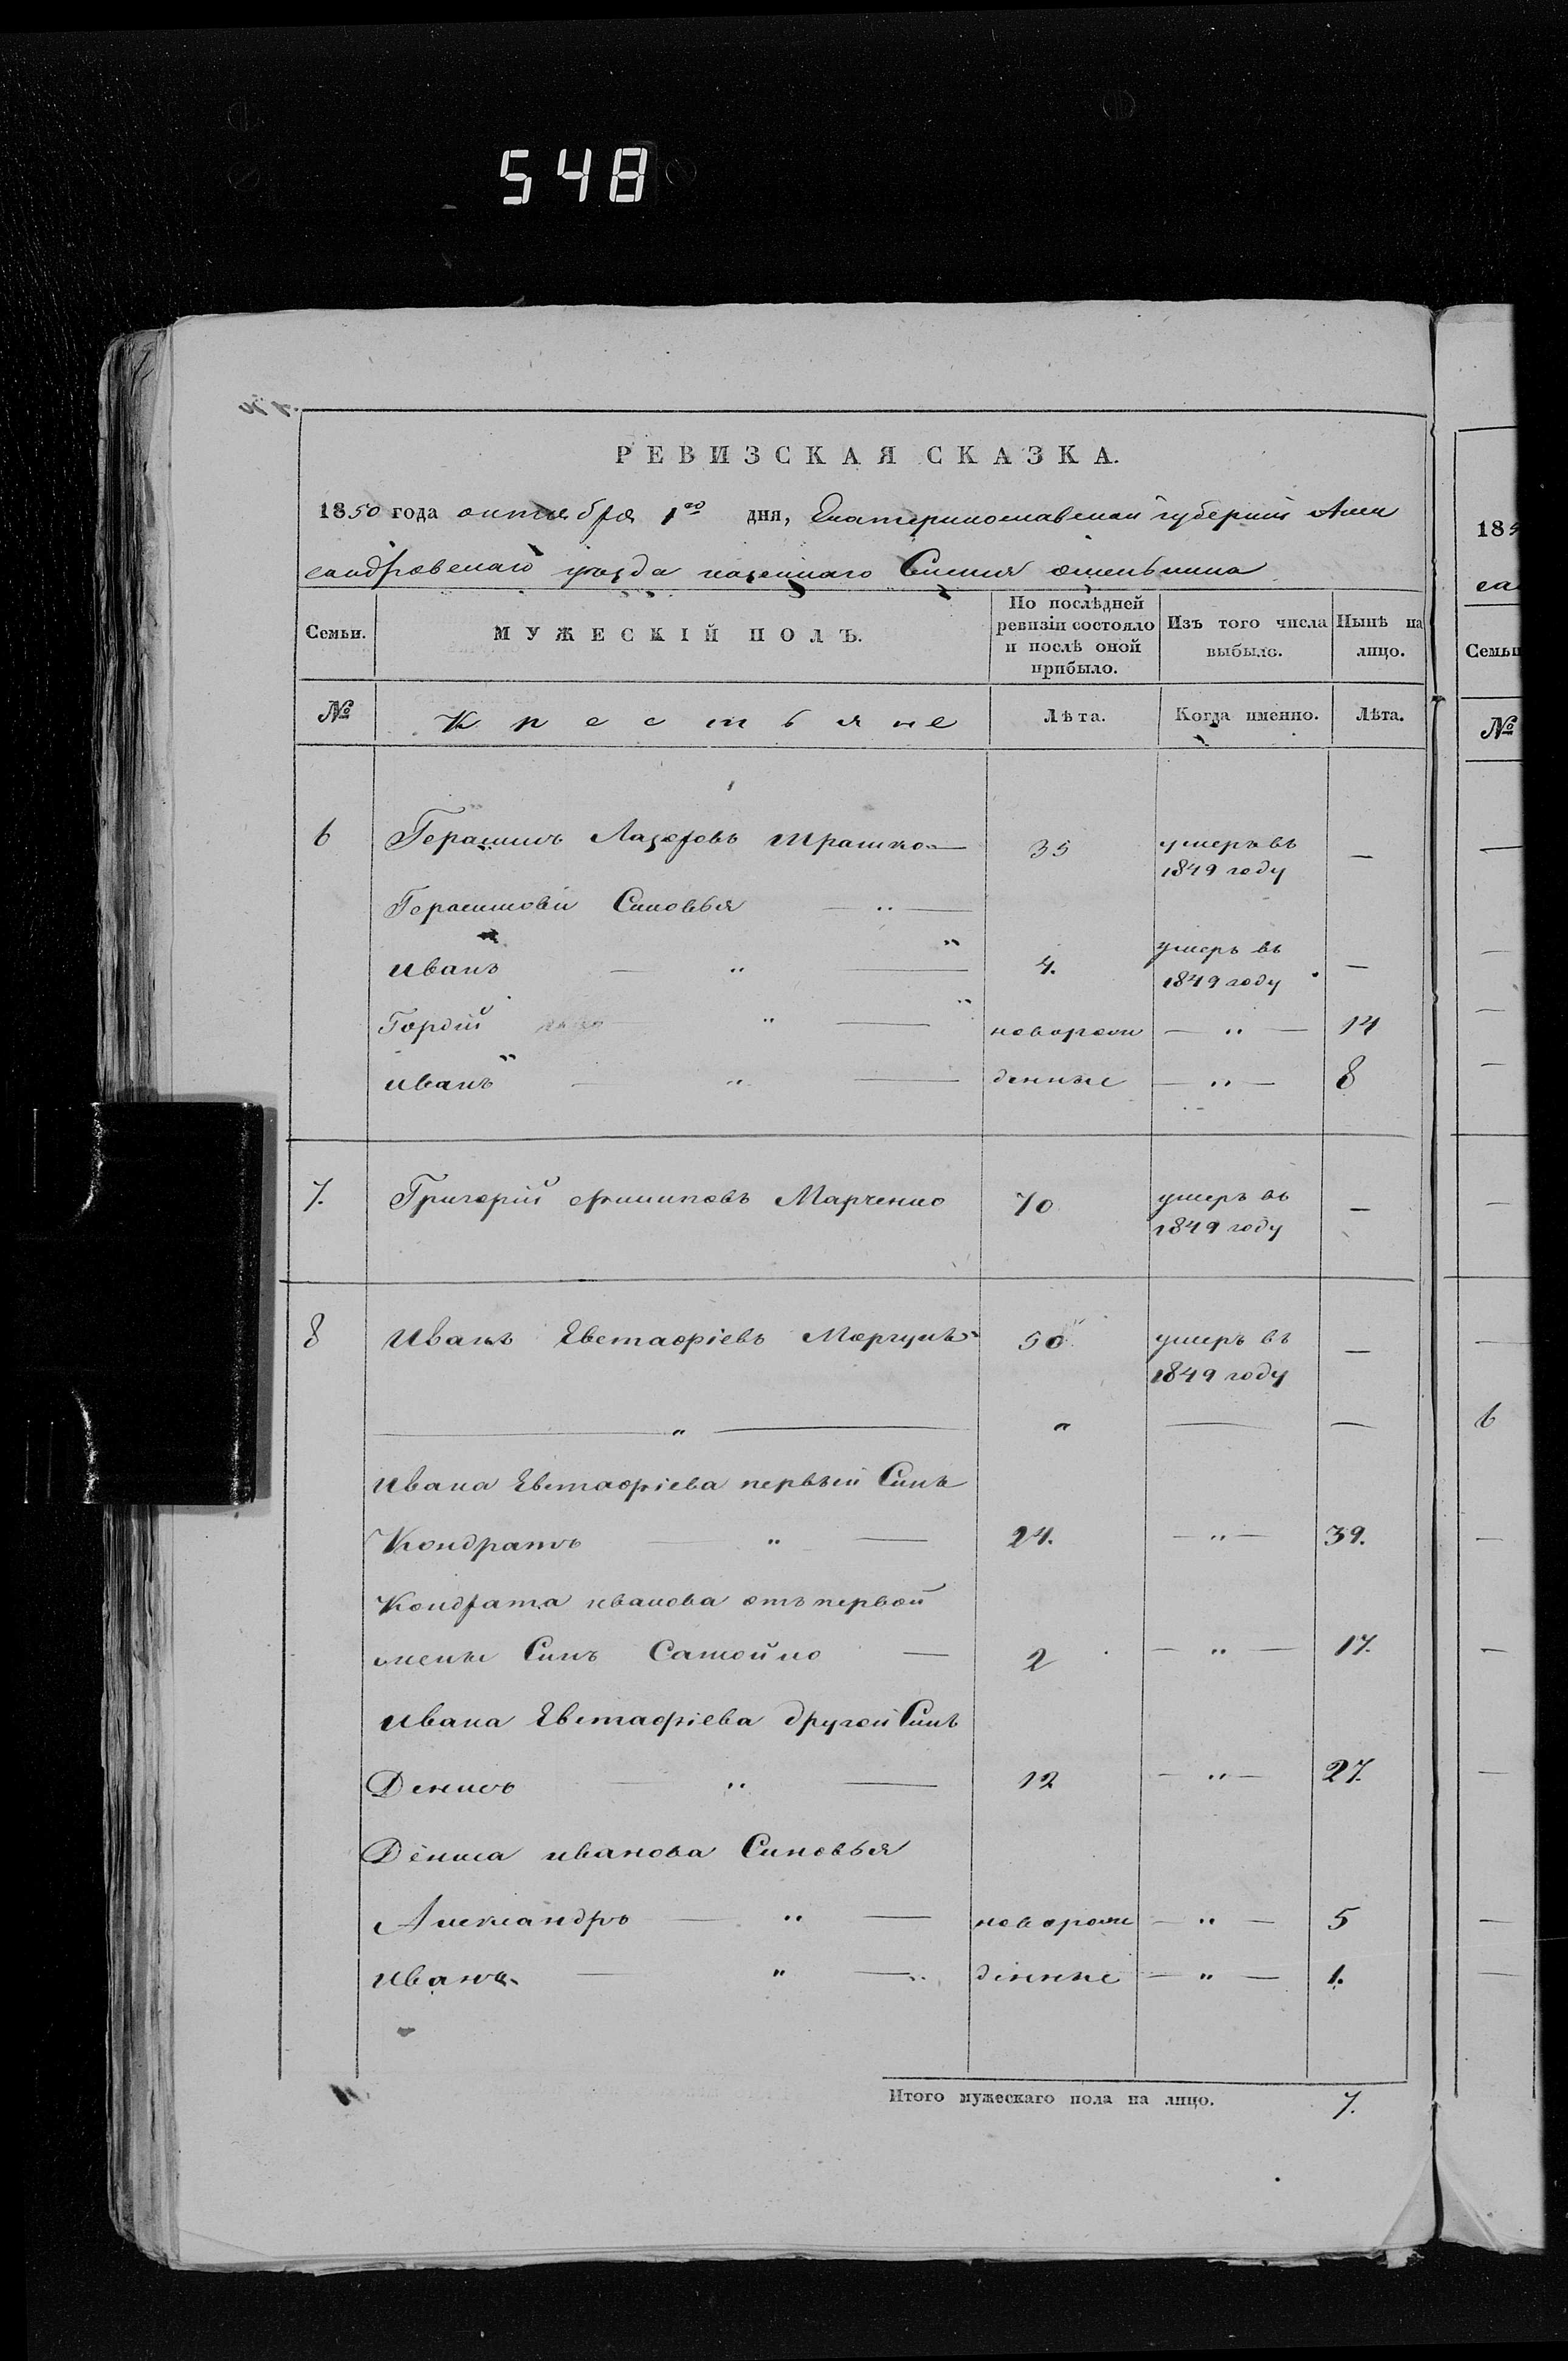 548
РЕВИЗСКАЯ СКАЗКА.
1850 года октября 1го дня, Екатеринославской губернiи Алек
сандровскаго уѣзда казеннаго
Семьи. МУЖЕСКІЙ ПОЛЪ. По послѣдней ревизіи состояло и послѣ оной прибыло. Изъ того числа выбыло. Нынѣ на лицо.
№ Крестьяне Лѣта. Когда именно. Лѣта.
6 Герасимъ Лазоровъ 35 умеръ въ 1849 году —
Герасимови Синовья — " —
Иванъ — " — 4. умеръ въ 1849 году —
Гордій — " — новорож — " — 14
Иванъ — " — денные — " — 8
7. Григорій Филиповъ Марченко 70 умеръ въ 1849 году —
8 Иванъ Евстафіевъ Моргунъ 50 умеръ въ 1849 году —
— " — " — —
Ивана Евстафіева первый Синъ
Кондратъ " — 24. — " — 39.
Кондрата иванова отъ первой
жены Синъ Самойло — 2 — " — 17.
Ивана Евстафіева другой Синъ
Денисъ — " — 12 — " — 27.
Дениса иванова Синовья
Александръ — " — новорож — " — 5
Иванъ — " — денные — " — 1.
Итого мужескаго пола на лицо. 7.
185
са
Семьи
№
6